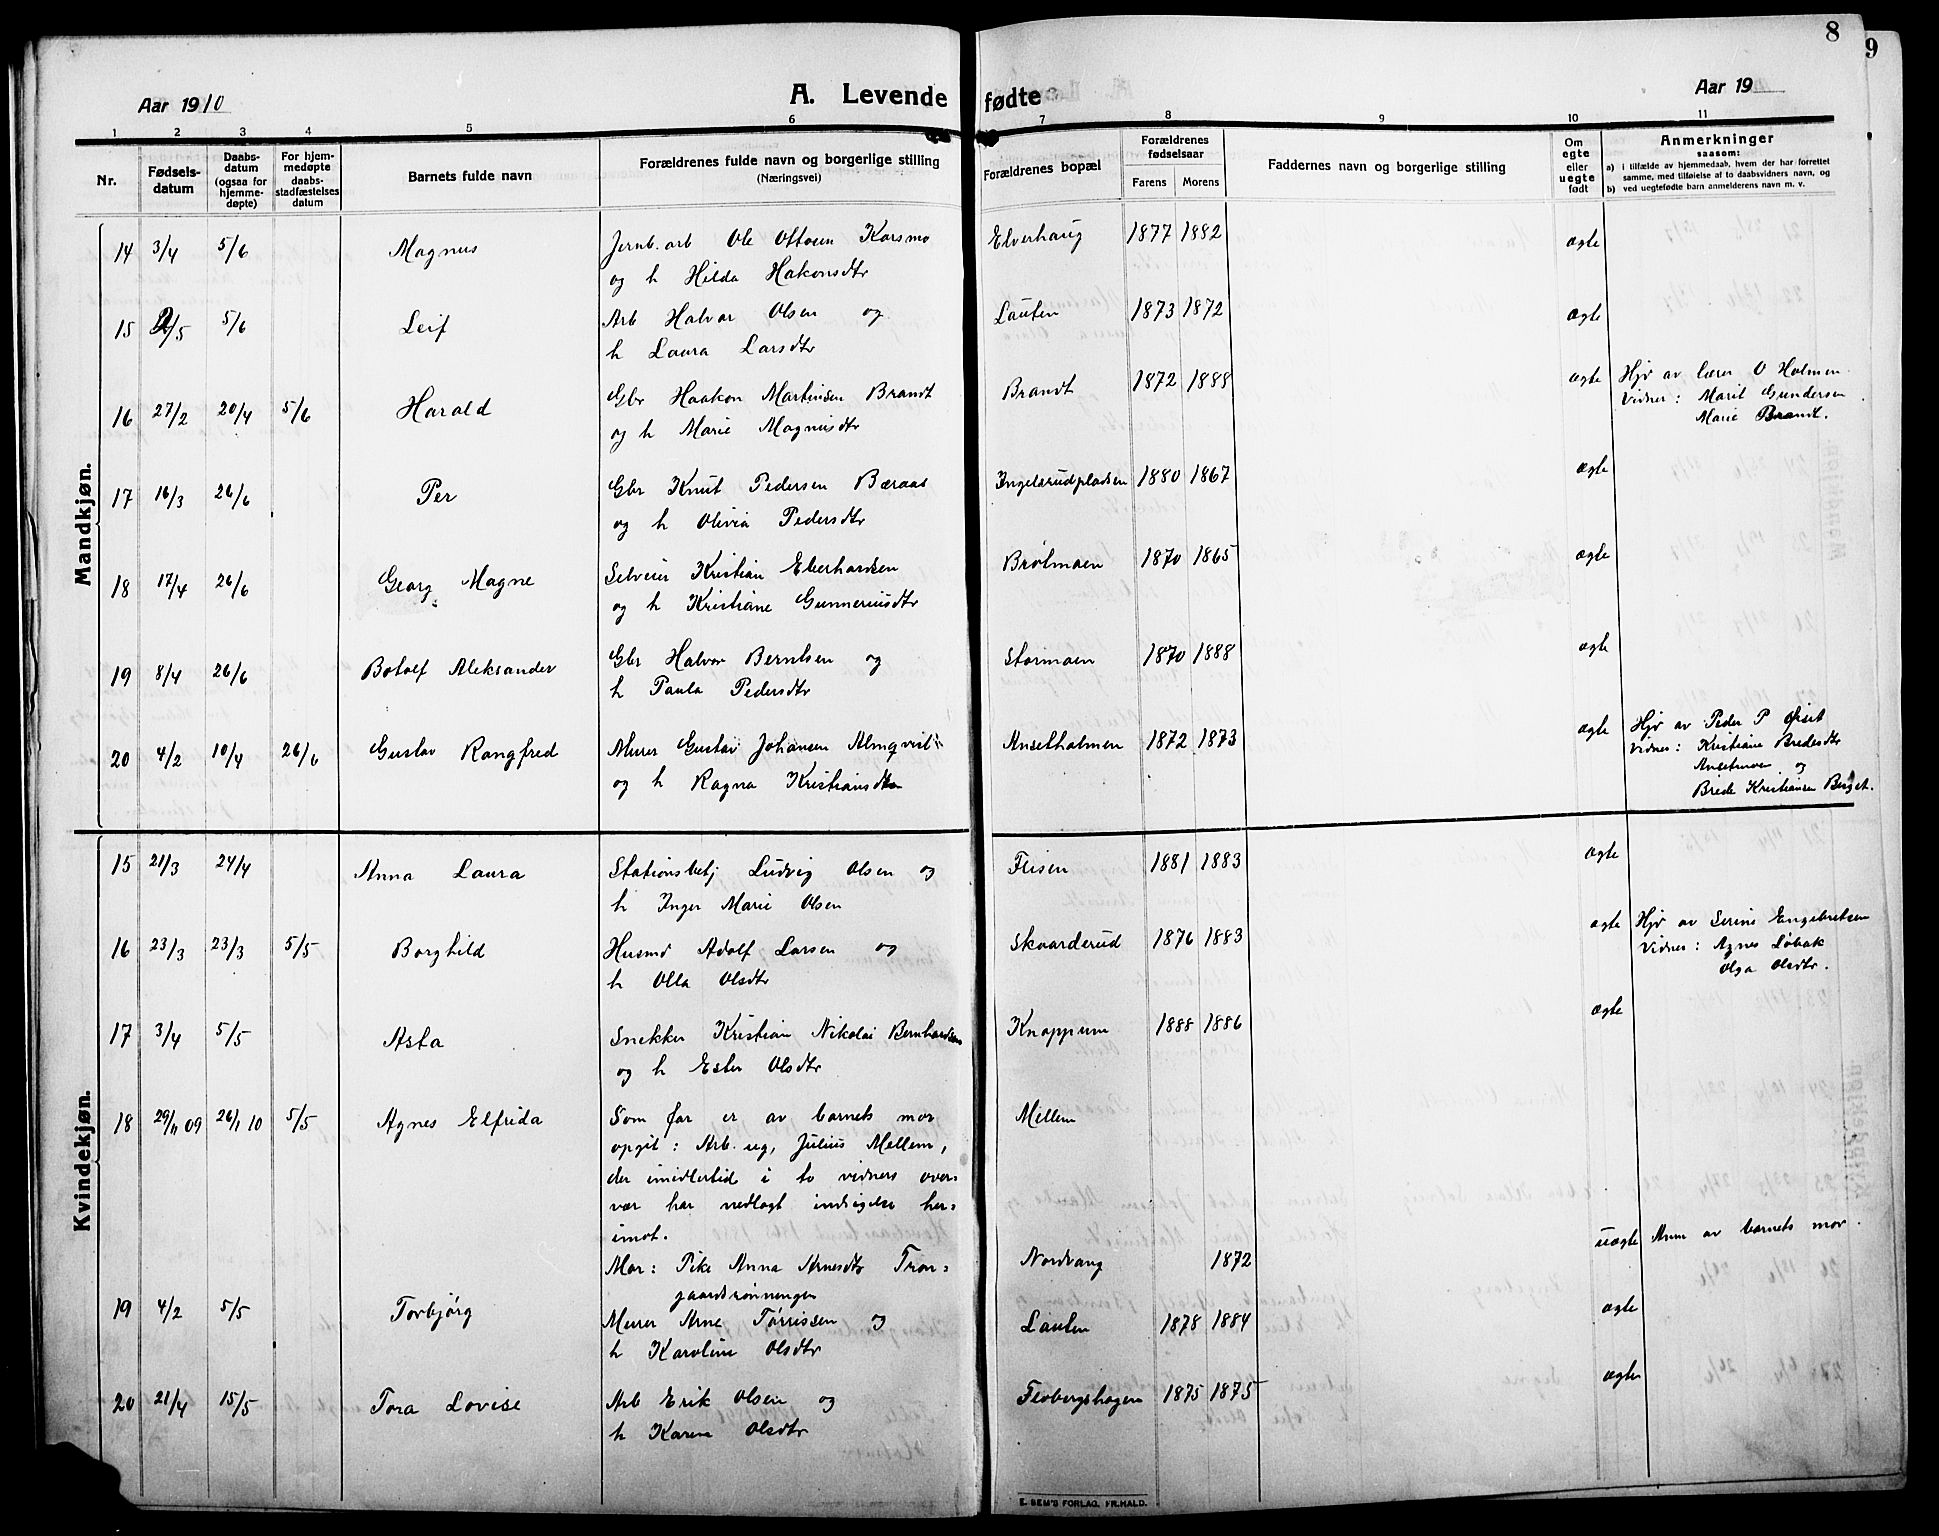 8
9
Aar 1910
A. Levende fødte
Aar 19
1 2 3 4 5 6 7 8 9 10 11
Nr.
Fødsels-
datum
Daabs-
datum
(ogsaa for
hjemme-
døpte)
For hjem-
medøpte
daabs-
stadfæstelses
datum
Barnets fulde navn
Forældrenes fulde navn og borgerlige stilling
(Næringsvei)
Forældrenes bopæl
Forældrenes
fødselsaar
Farens Morens
Faddernes navn og borgerlige stilling
Om
egte
eller
uegte
født
Anmerkninger
saasom:
a) i tilfælde av hjemmedaab, hvem der har forrettet
samme, med tilføielse af to daabsvidners navn, og
b) ved uegtefødte barn anmelderens navn m. v.
Mandkjøn.
14 3/4 5/6 Magnus Jernb.arb Ole Ottosen Karsmo Elverhaug 1877 1882 ægte
og h Hilda Hakonsdtr
15 2/5 5/6 Leif Arb Halvor Olsen og Lauten 1873 1872 ægte
h Laura Larsdtr
16 27/2 20/4 5/6 Harald Gbr Haakon Martinsen Brandt Brandt 1872 1888 ægte Hjd av lærer O Holmen.
og h Marie Magnusdtr Vidner: Marit Gundersen
Marie Brandt.
17 16/3 26/6 Per Gbr Knut Pedersen Bæraas Ingelsrudpladsen 1880 1867 ægte
og h Olivia Pedersdtr
18 17/4 26/6 Georg Magne Selveier Kristian Eberhardsen Brølmoen 1870 1865 ægte
og h Kristiane Gunneriusdtr
19 8/4 26/6 Botolf Aleksander Gbr Halvor Berntsen og Stormoen 1870 1888 ægte
h Paula Pedersdtr
20 4/2 10/4 26/6 Gustav Rangfred Murer Gustav Johansen Almqvist Ansetholmen 1872 1873 ægte Hjd av Peder P Øiset
og h Ragna Kristiansdtr Vidner: Kristiane Bredesdtr
og
Brede Kristiansen Berget.
Kvindekjøn.
15 21/3 24/4 Anna Laura Stationsbetj Ludvig Olsen og Flisen 1881 1883 ægte
h Inger Marie Olsen
16 23/3 23/3 5/5 Borghild Husmd Adolf Larsen og Skaarderud 1876 1883 ægte Hjd av Serine Engebretsen
h Olla Olsdtr Vidner: Agnes Løbak
Olga Olsdtr.
17 3/4 5/5 Asta Snekker Kristian Nikolai Bernhardsen Knappum 1888 1886 ægte
og h Ester Olsdtr
18 29/11 09 26/1 10 5/5 Agnes Elfrida Som far er av barnets mor Mellem
opgit: Arb. ug, Julius Mellem,
der imidlertid i to vidners over-
vær har nedlagt indsigelse her-
imot. uægte Anm av barnets mor.
Mor: Pike Anna Arnesdtr Tron- Nordvang 1872
gaardsrønningen
19 4/2 5/5 Torbjørg Murer Arne Tørrissen og Lauten 1878 1884 ægte
h Karoline Olsdtr
20 21/4 15/5 Tora Lovise Arb Erik Olsen og Flobergshagen 1875 1875 ægte
h Karen Olsdtr
E. SEM'S FORLAG. FR.HALD.